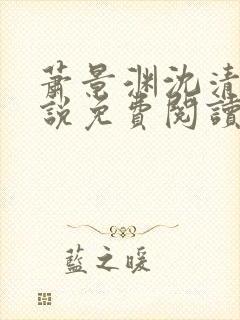 蕭景淵沈清
說免費閱讀
藍之暖